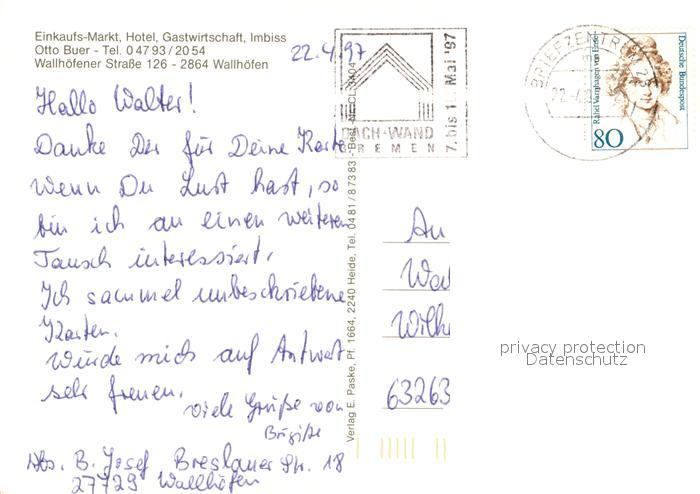 Einkaufs-Markt, Hotel, Gastwirtschaft, Imbiss
Otto Buer - Tel. 0 47 93 / 20 54
Wallhöfener Straße 126 - 2864 Wallhöfen
22.4.97
Hallo Walter!
Danke Dir für Deine Karte
Wenn Du Lust hast, so
bin ich an einen weiteren
Tausch interessiert.
Ich sammel unbeschriebene
Karten.
Würde mich auf Antwort
sehr freuen.
Viele Grüße von
Brigitte
Abs. B. Josef Breslauer Str. 18
27729 Wallhöfen
Verlag E. Paske, Pf. 1664, 2240 Heide, Tel. 04 81 / 8 73 83 - Best.-Nr.
DACH+WAND
BREMEN
7. bis 1 . Mai '97
BRIEFZENTRUM 28
Rahel Varnhagen von Ense
Deutsche Bundespost
80
An
Wal
Wilh
63263
privacy protection
Datenschutz